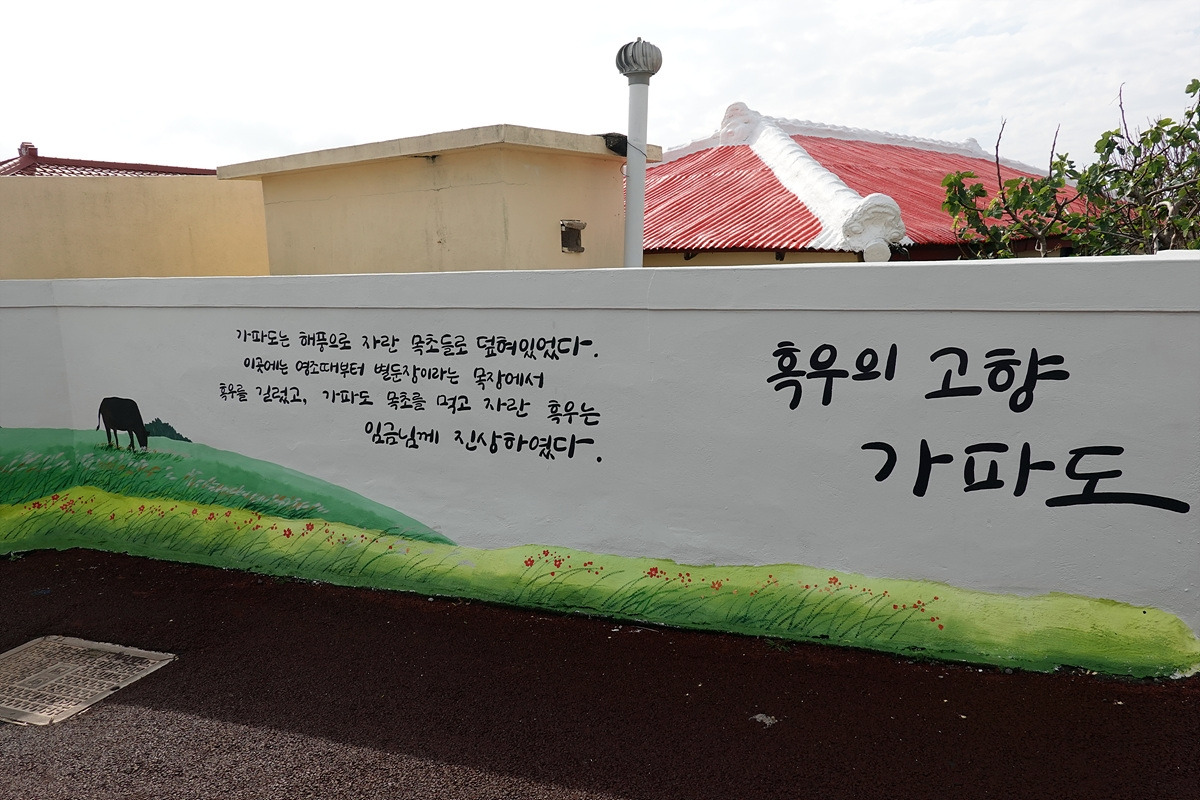 가파도는 해풍으로 자란 목초들로 덮혀있었다.
이곳에는 영조때부터 별둔장이라는 목장에서
흑우를 길렀고, 가파도 목초를 먹고 자란 흑우는
임금님께 진상하였다.
흑우의 고향
가파도